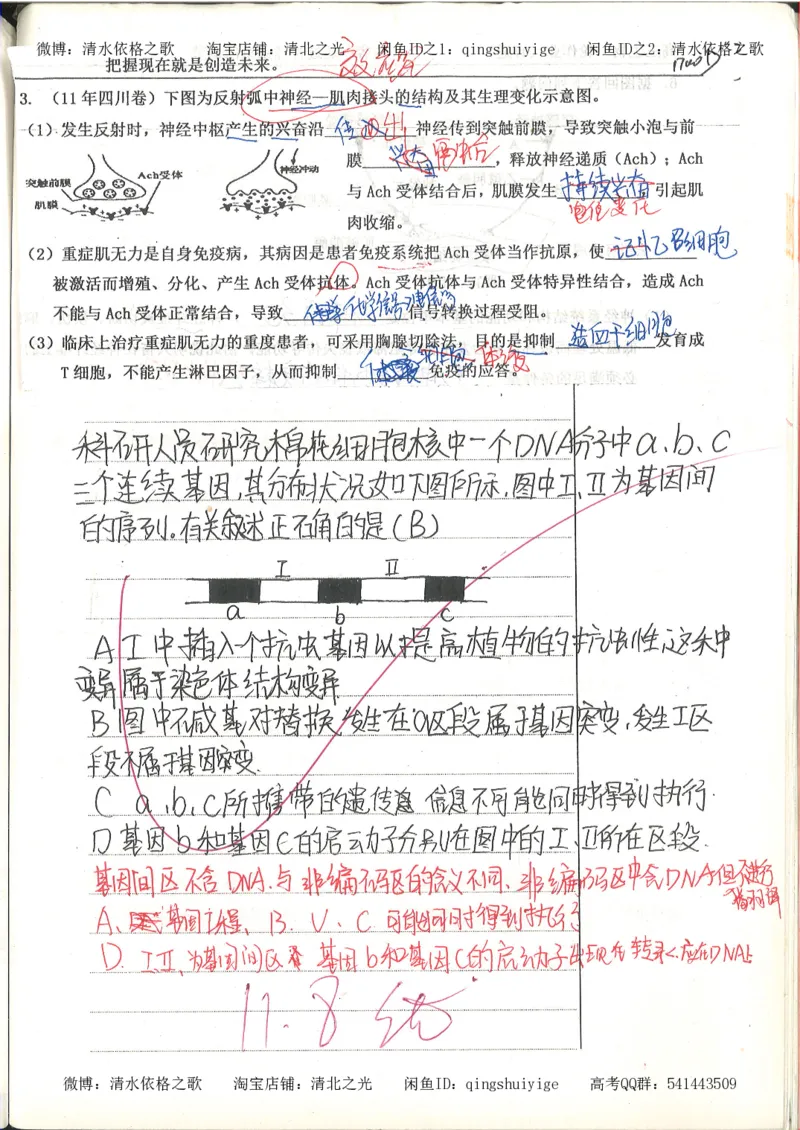 微博：清水依格之歌 淘宝店铺：清北之光 闲鱼ID之1：qingshuiyige 闲鱼ID之2：清水依格之歌
把握现在就是创造未来。
效应器
3. （11年四川卷）下图为反射弧中神经—肌肉接头的结构及其生理变化示意图。
（1）发生反射时，神经中枢产生的兴奋沿 传出 神经传到突触前膜，导致突触小泡与前
膜 融合 ，释放神经递质（Ach）；Ach
突触前膜 Ach受体 神经冲动
与Ach受体结合后，肌膜发生 持续兴奋 引起肌
肌膜
电位变化
肉收缩。
（2）重症肌无力是自身免疫病，其病因是患者免疫系统把Ach受体当作抗原，使 记忆B细胞
被激活而增殖、分化、产生Ach受体抗体。Ach受体抗体与Ach受体特异性结合，造成Ach
不能与Ach受体正常结合，导致 化学信号 信号转换过程受阻。
（3）临床上治疗重症肌无力的重度患者，可采用胸腺切除法，目的是抑制 造血干细胞 发育成
T细胞，不能产生淋巴因子，从而抑制 免疫的应答。
科研人员研究棉花细胞核中一个DNA分子中a、b、c
三个连续基因，其分布状况如下图所示，图中I、II为基因间
的序列。有关叙述正确的是（B）
I II
a b c
A I中插入一个抗虫基因以提高植物的抗虫性，这种
变异属于染色体结构变异
B 图中碱基对替换发生在a区段属于基因突变，发生I区
段不属于基因突变.
C a、b、c所携带的遗传信息不可能同时得到执行.
D 基因b和基因c的启动子分别在图中的I、II所在区段.
基因间区不含DNA.与非编码区的含义不同、非编码区中含DNA但不进行
翻译
A、基因工程、B. √、C 可能同时得到执行
D. I、II、为基因间区 基因b和基因c的启动子出现在转录<.应在DNA上
11.8
微博：清水依格之歌 淘宝店铺：清北之光 闲鱼ID：qingshuiyige 高考QQ群：541443509